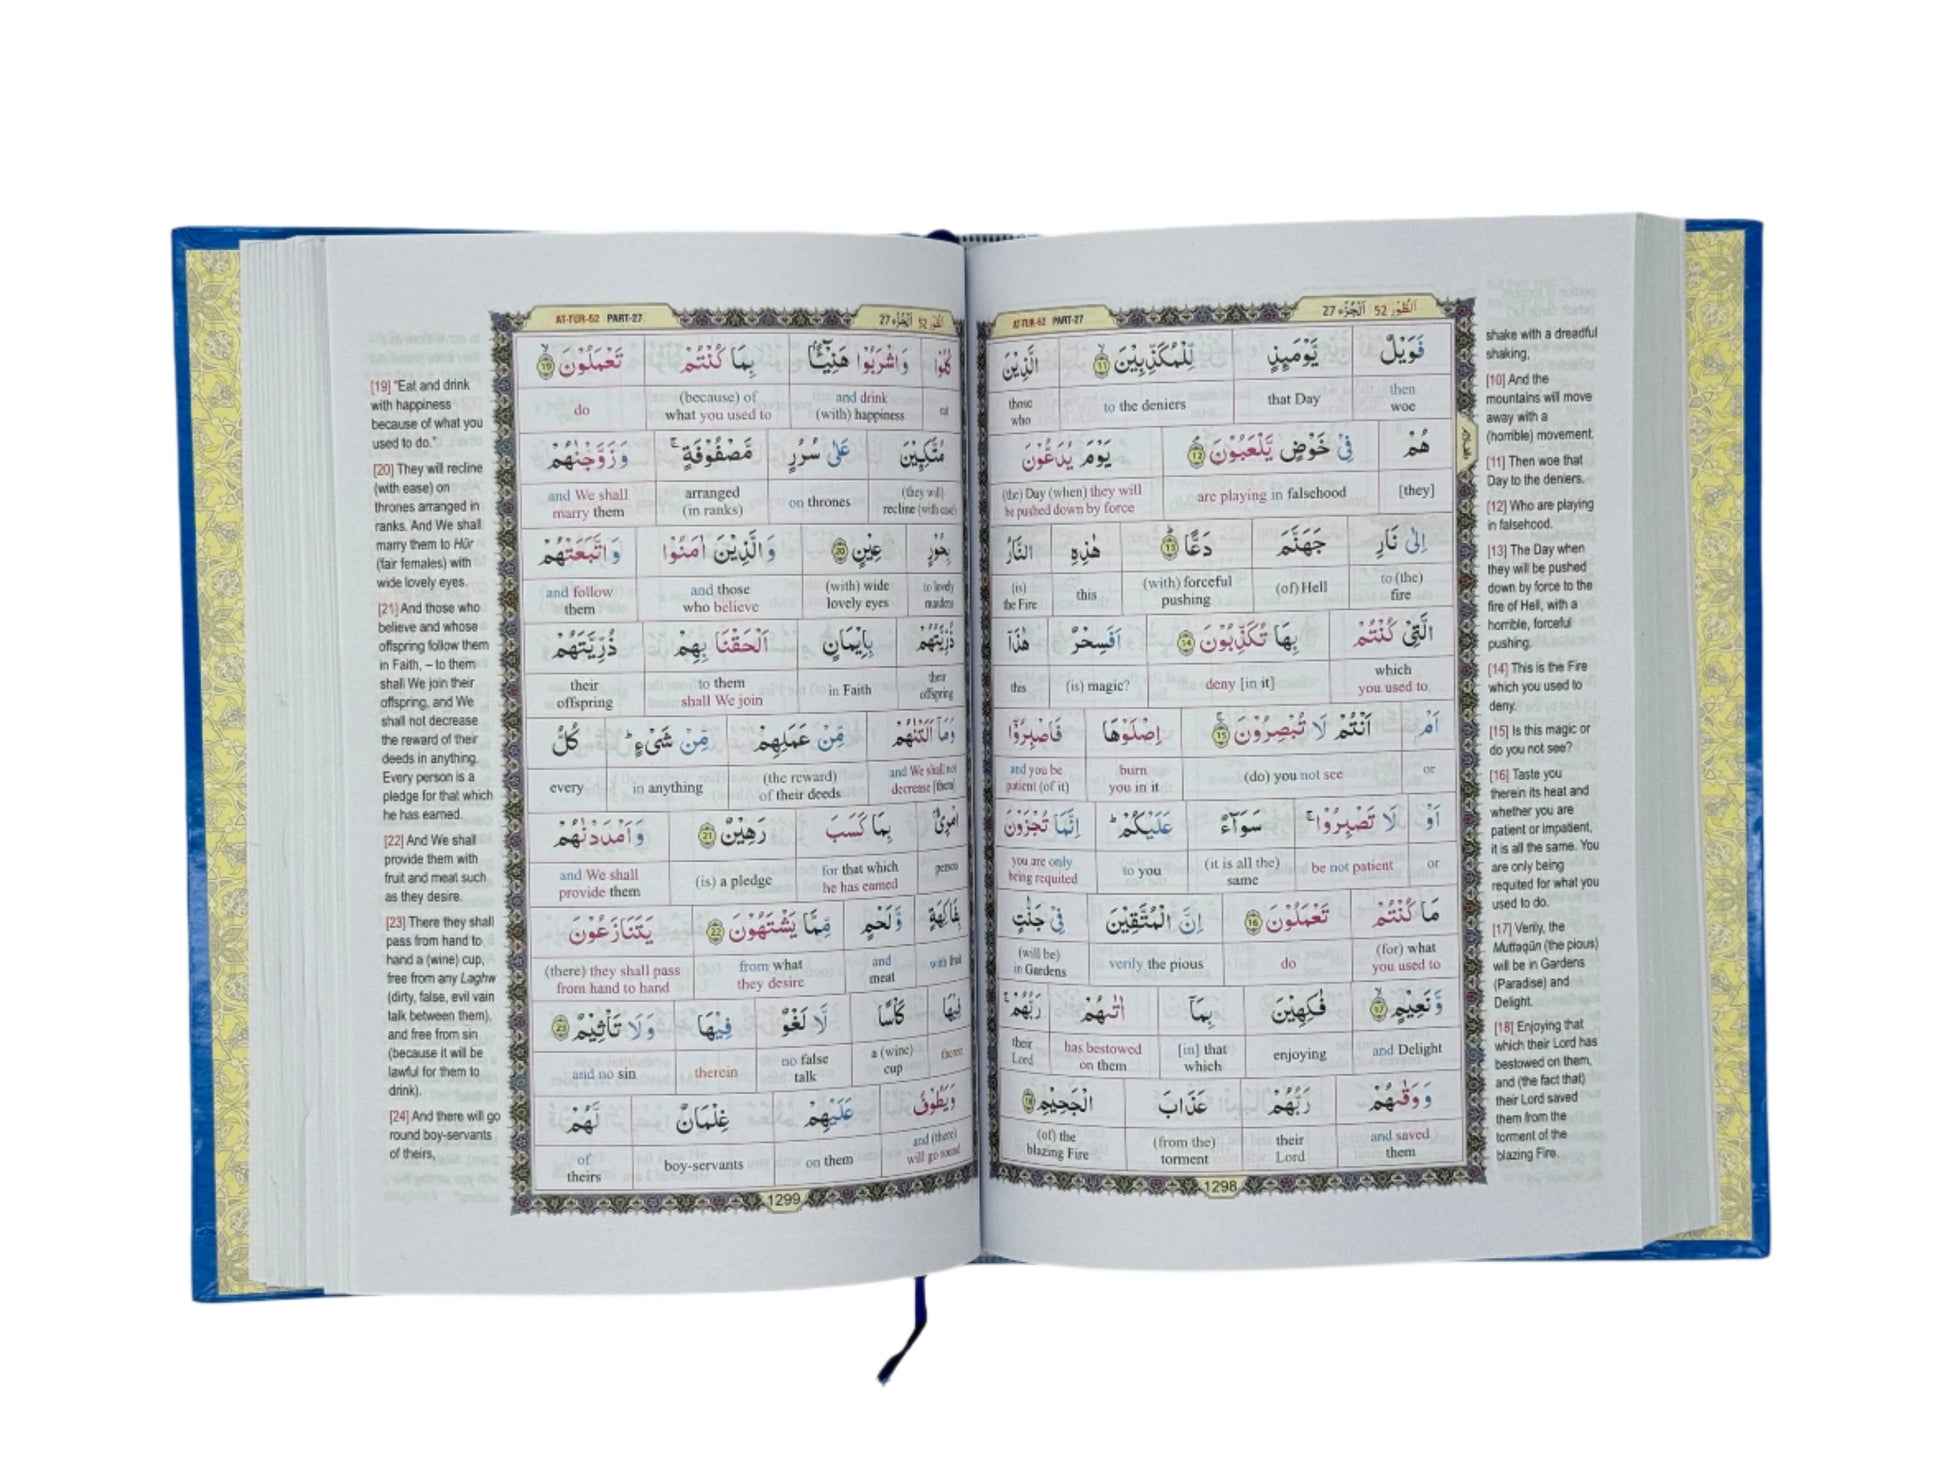 AT-TUR-52 PART-27 اَلْجُزْء 27 اَلطُّوْر 52
فَوَيْلٌ يَّوْمَىِٕذٍ لِّلْمُكَذِّبِيْنَ ۙ ١١ الَّذِيْنَ
then woe that Day to the deniers those who
هُمْ فِيْ خَوْضٍ يَّلْعَبُوْنَ ١٢ يَوْمَ يُدَعُّوْنَ
[they] are playing in falsehood (the) Day (when) they will be pushed down by force
اِلٰى نَارِ جَهَنَّمَ دَعًّا ١٣ هٰذِهِ النَّارُ
to (the) fire (of) Hell (with) forceful pushing this (is) the Fire
الَّتِيْ كُنْتُمْ بِهَا تُكَذِّبُوْنَ ١٤ اَفَسِحْرٌ هٰذَآ
which you used to deny [in it] (is) magic? this
اَمْ اَنْتُمْ لَا تُبْصِرُوْنَ ١٥ اِصْلَوْهَا فَاصْبِرُوْٓا
or (do) you not see burn you in it and you be patient (of it)
اَوْ لَا تَصْبِرُوْا ۚ سَوَآءٌ عَلَيْكُمْ ۭ اِنَّمَا تُجْزَوْنَ
or be not patient (it is all the) same to you you are only being requited
مَا كُنْتُمْ تَعْمَلُوْنَ ١٦ اِنَّ الْمُتَّقِيْنَ فِيْ جَنّٰتٍ
(for) what you used to do verily the pious (will be) in Gardens
وَّنَعِيْمٍ ۙ ١٧ فٰكِهِيْنَ بِمَآ اٰتٰىهُمْ رَبُّهُمْ ۚ
and Delight enjoying [in] that which has bestowed on them their Lord
وَوَقٰىهُمْ رَبُّهُمْ عَذَابَ الْجَحِيْمِ ١٨
and saved them their Lord (from the) torment (of) the blazing Fire
1298
shake with a dreadful
shaking,
[10] And the
mountains will move
away with a
(horrible) movement.
[11] Then woe that
Day to the deniers.
[12] Who are playing
in falsehood.
[13] The Day when
they will be pushed
down by force to the
fire of Hell, with a
horrible, forceful
pushing.
[14] This is the Fire
which you used to
deny.
[15] Is this magic or
do you not see?
[16] Taste you
therein its heat and
whether you are
patient or impatient,
it is all the same. You
are only being
requited for what you
used to do.
[17] Verily, the
Muttaqûn (the pious)
will be in Gardens
(Paradise) and
Delight.
[18] Enjoying that
which their Lord has
bestowed on them,
and (the fact that)
their Lord saved
them from the
torment of the
blazing Fire.
AT-TUR-52 PART-27 اَلْجُزْء 27 اَلطُّوْر 52
كُلُوْا وَاشْرَبُوْا هَنِيْٓئًۢا بِمَا كُنْتُمْ تَعْمَلُوْنَ ۙ ١٩
eat and drink (with) happiness (because) of what you used to do
مُتَّكِـِٕيْنَ عَلٰى سُرُرٍ مَّصْفُوْفَةٍ ۚ وَزَوَّجْنٰهُمْ
(they will) recline (with ease) on thrones arranged (in ranks) and We shall marry them
بِحُوْرٍ عِيْنٍ ٢٠ وَالَّذِيْنَ اٰمَنُوْا وَاتَّبَعَتْهُمْ
to lovely maidens (with) wide lovely eyes and those who believe and follow them
ذُرِّيَّتُهُمْ بِاِيْمَانٍ اَلْحَقْنَا بِهِمْ ذُرِّيَّتَهُمْ
their offspring in Faith to them shall We join their offspring
وَمَآ اَلَتْنٰهُمْ مِّنْ عَمَلِهِمْ مِّنْ شَيْءٍ ۭ كُلُّ
and We shall not decrease [them] (the reward) of their deeds in anything every
امْرِئٍۢ بِمَا كَسَبَ رَهِيْنٌ ٢١ وَاَمْدَدْنٰهُمْ
person for that which he has earned (is) a pledge and We shall provide them
بِفَاكِهَةٍ وَّلَحْمٍ مِّمَّا يَشْتَهُوْنَ ٢٢ يَتَنَازَعُوْنَ
with fruit and meat from what they desire (there) they shall pass from hand to hand
فِيْهَا كَاْسًا لَّا لَغْوٌ فِيْهَا وَلَا تَاْثِيْمٌ ٢٣
therein a (wine) cup no false talk therein and no sin
وَيَطُوْفُ عَلَيْهِمْ غِلْمَانٌ لَّهُمْ
and (there) will go round on them boy-servants of theirs
1299
[19] "Eat and drink
with happiness
because of what you
used to do."
[20] They will recline
(with ease) on
thrones arranged in
ranks. And We shall
marry them to Hûr
(fair females) with
wide lovely eyes.
[21] And those who
believe and whose
offspring follow them
in Faith, – to them
shall We join their
offspring, and We
shall not decrease
the reward of their
deeds in anything.
Every person is a
pledge for that which
he has earned.
[22] And We shall
provide them with
fruit and meat such
as they desire.
[23] There they shall
pass from hand to
hand a (wine) cup,
free from any Laghw
(dirty, false, evil vain
talk between them),
and free from sin
(because it will be
lawful for them to
drink).
[24] And there will go
round boy-servants
of theirs,